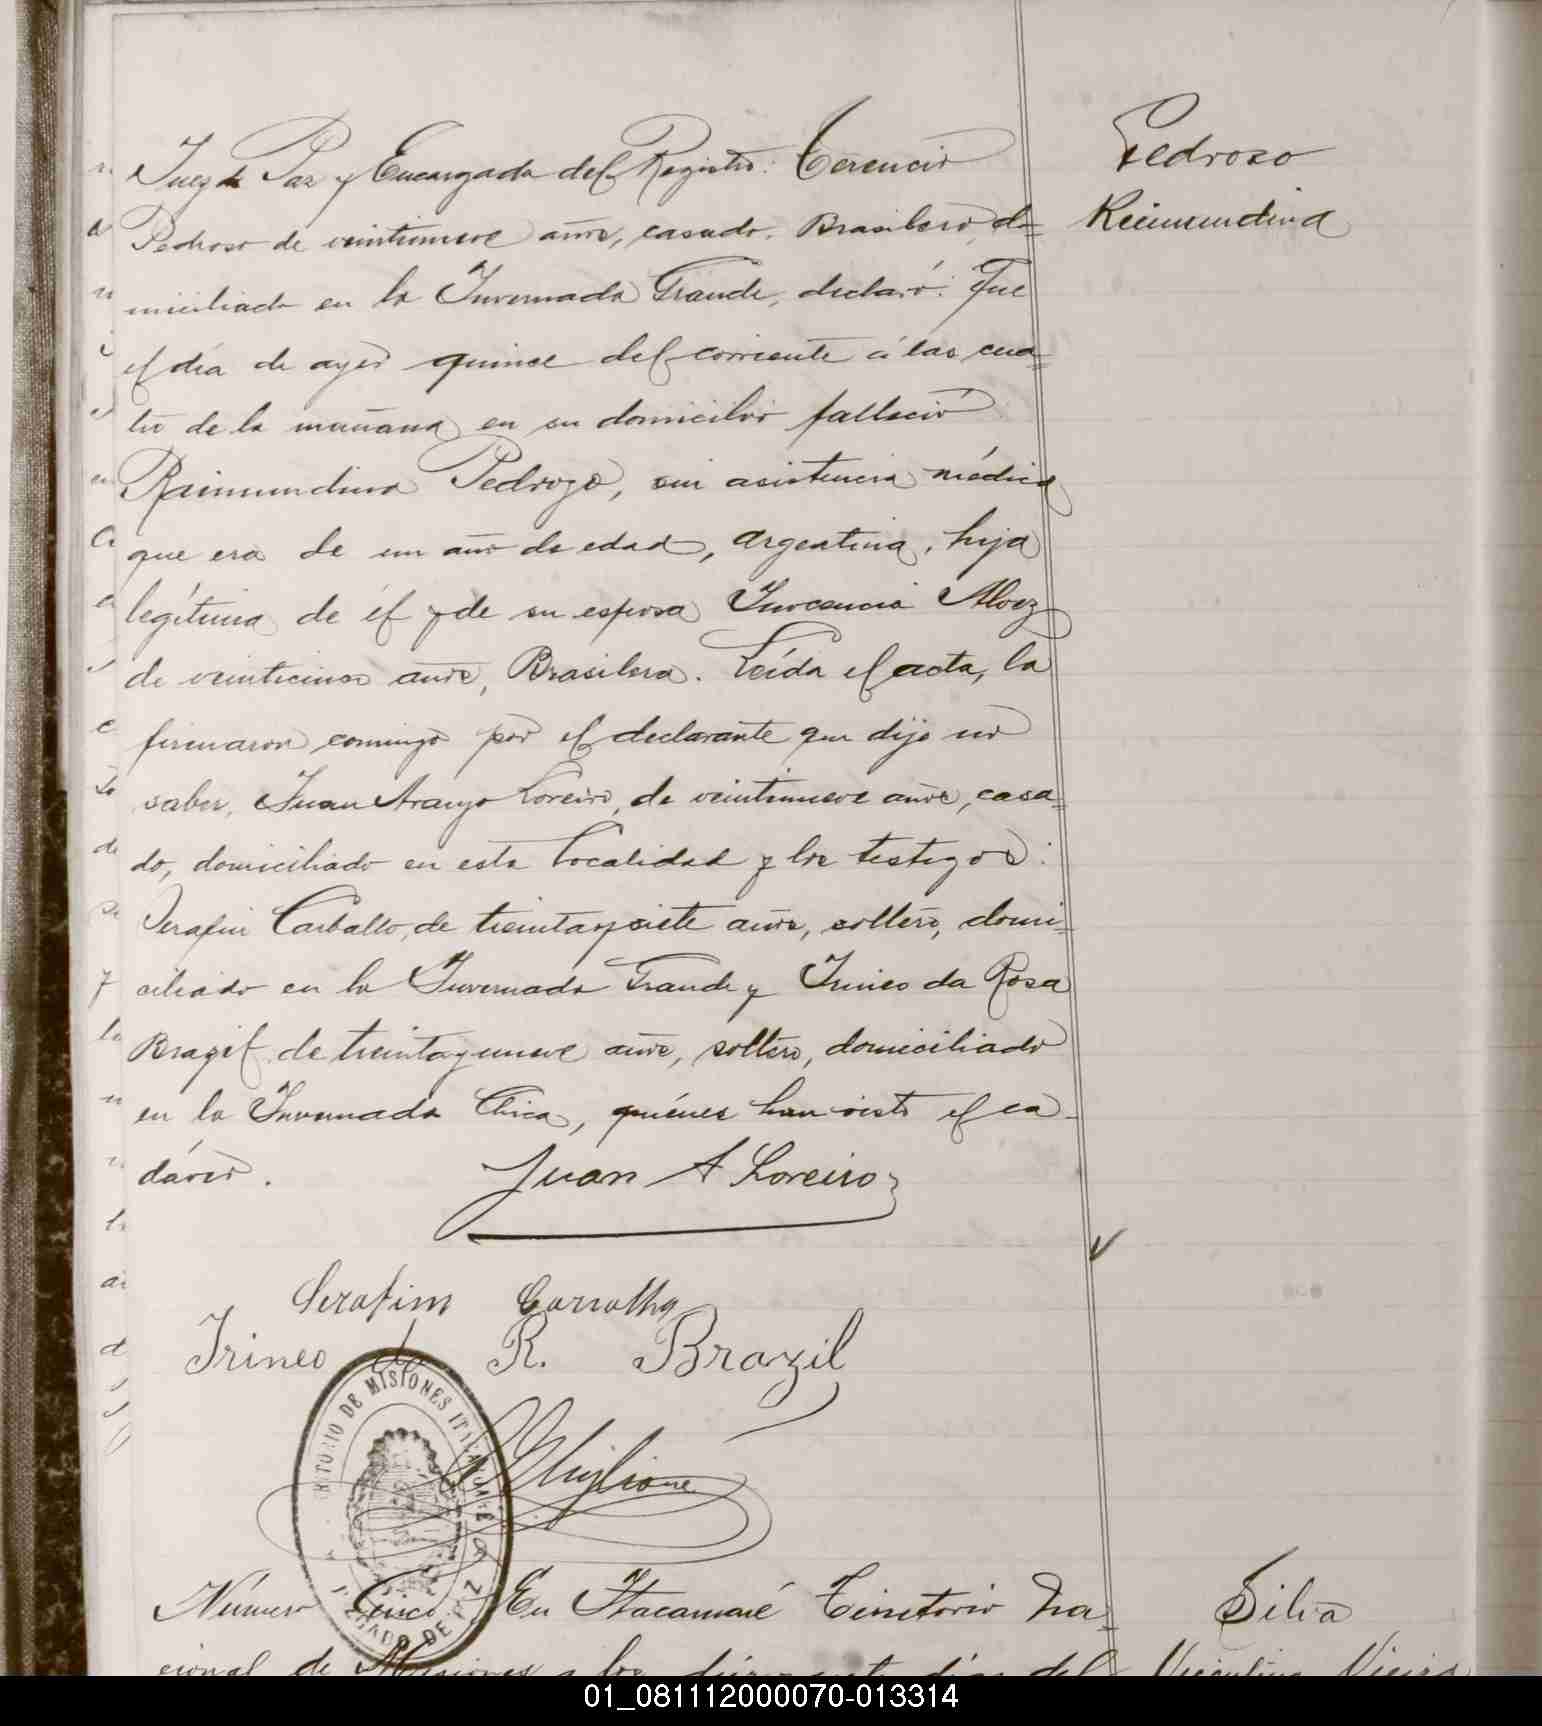 Juez de Paz y Encargado del Registro: Terencio
Pedroso de veintinueve años, casado, Brasilero, do=
miciliado en la Invernada Grande, declaró: Que
el día de ayer quince del corriente á las cua=
tro de la mañana en su domicilio falleció
Raimundina Pedrozo, sin asistencia médica
que era de un año de edad, argentina, hija
legítima de él y de su esposa Inocencia Alvez
de veinticinco años, Brasilera. Leída el acta, la
firmaron conmigo por el declarante que dijo no
saber, Juan Araujo Loreiro, de veintinueve años, casa=
do, domiciliado en esta localidad y los testigos:
Serafin Carballo, de treintaysiete años, soltero, domi=
ciliado en la Invernada Grande y Irineo da Rosa
Brazil de treintaynueve años, soltero, domiciliado
en la Invernada Chica, quiénes han visto el ca-
dáver.
Juan A Loreiro
Serafim Carvalho
Irineo d R. Brazil
Miglione
TERRITORIO DE MISIONES ITACARUARÉ
JUZGADO DE PAZ
Pedrozo
Reimundina
Número Cinco En Itacaruaré Territorio Na=
cional de Misiones a los diez y siete días del
Silva
Vicentina Vieira
01_081112000070-013314